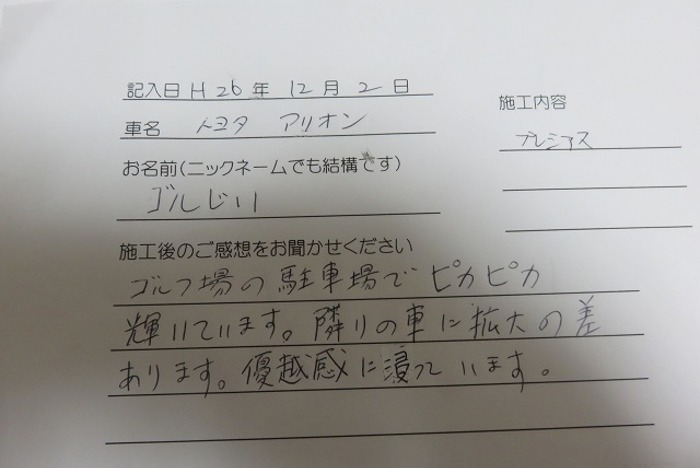 記入日 H 26 年 12 月 2 日
施工内容
車名 トヨタ アリオン
プレシャス
お名前(ニックネームでも結構です)
ゴルじい
施工後のご感想をお聞かせください
ゴルフ場の駐車場でピカピカ
輝いています。隣りの車に拡大の差
あります。優越感に浸っています。